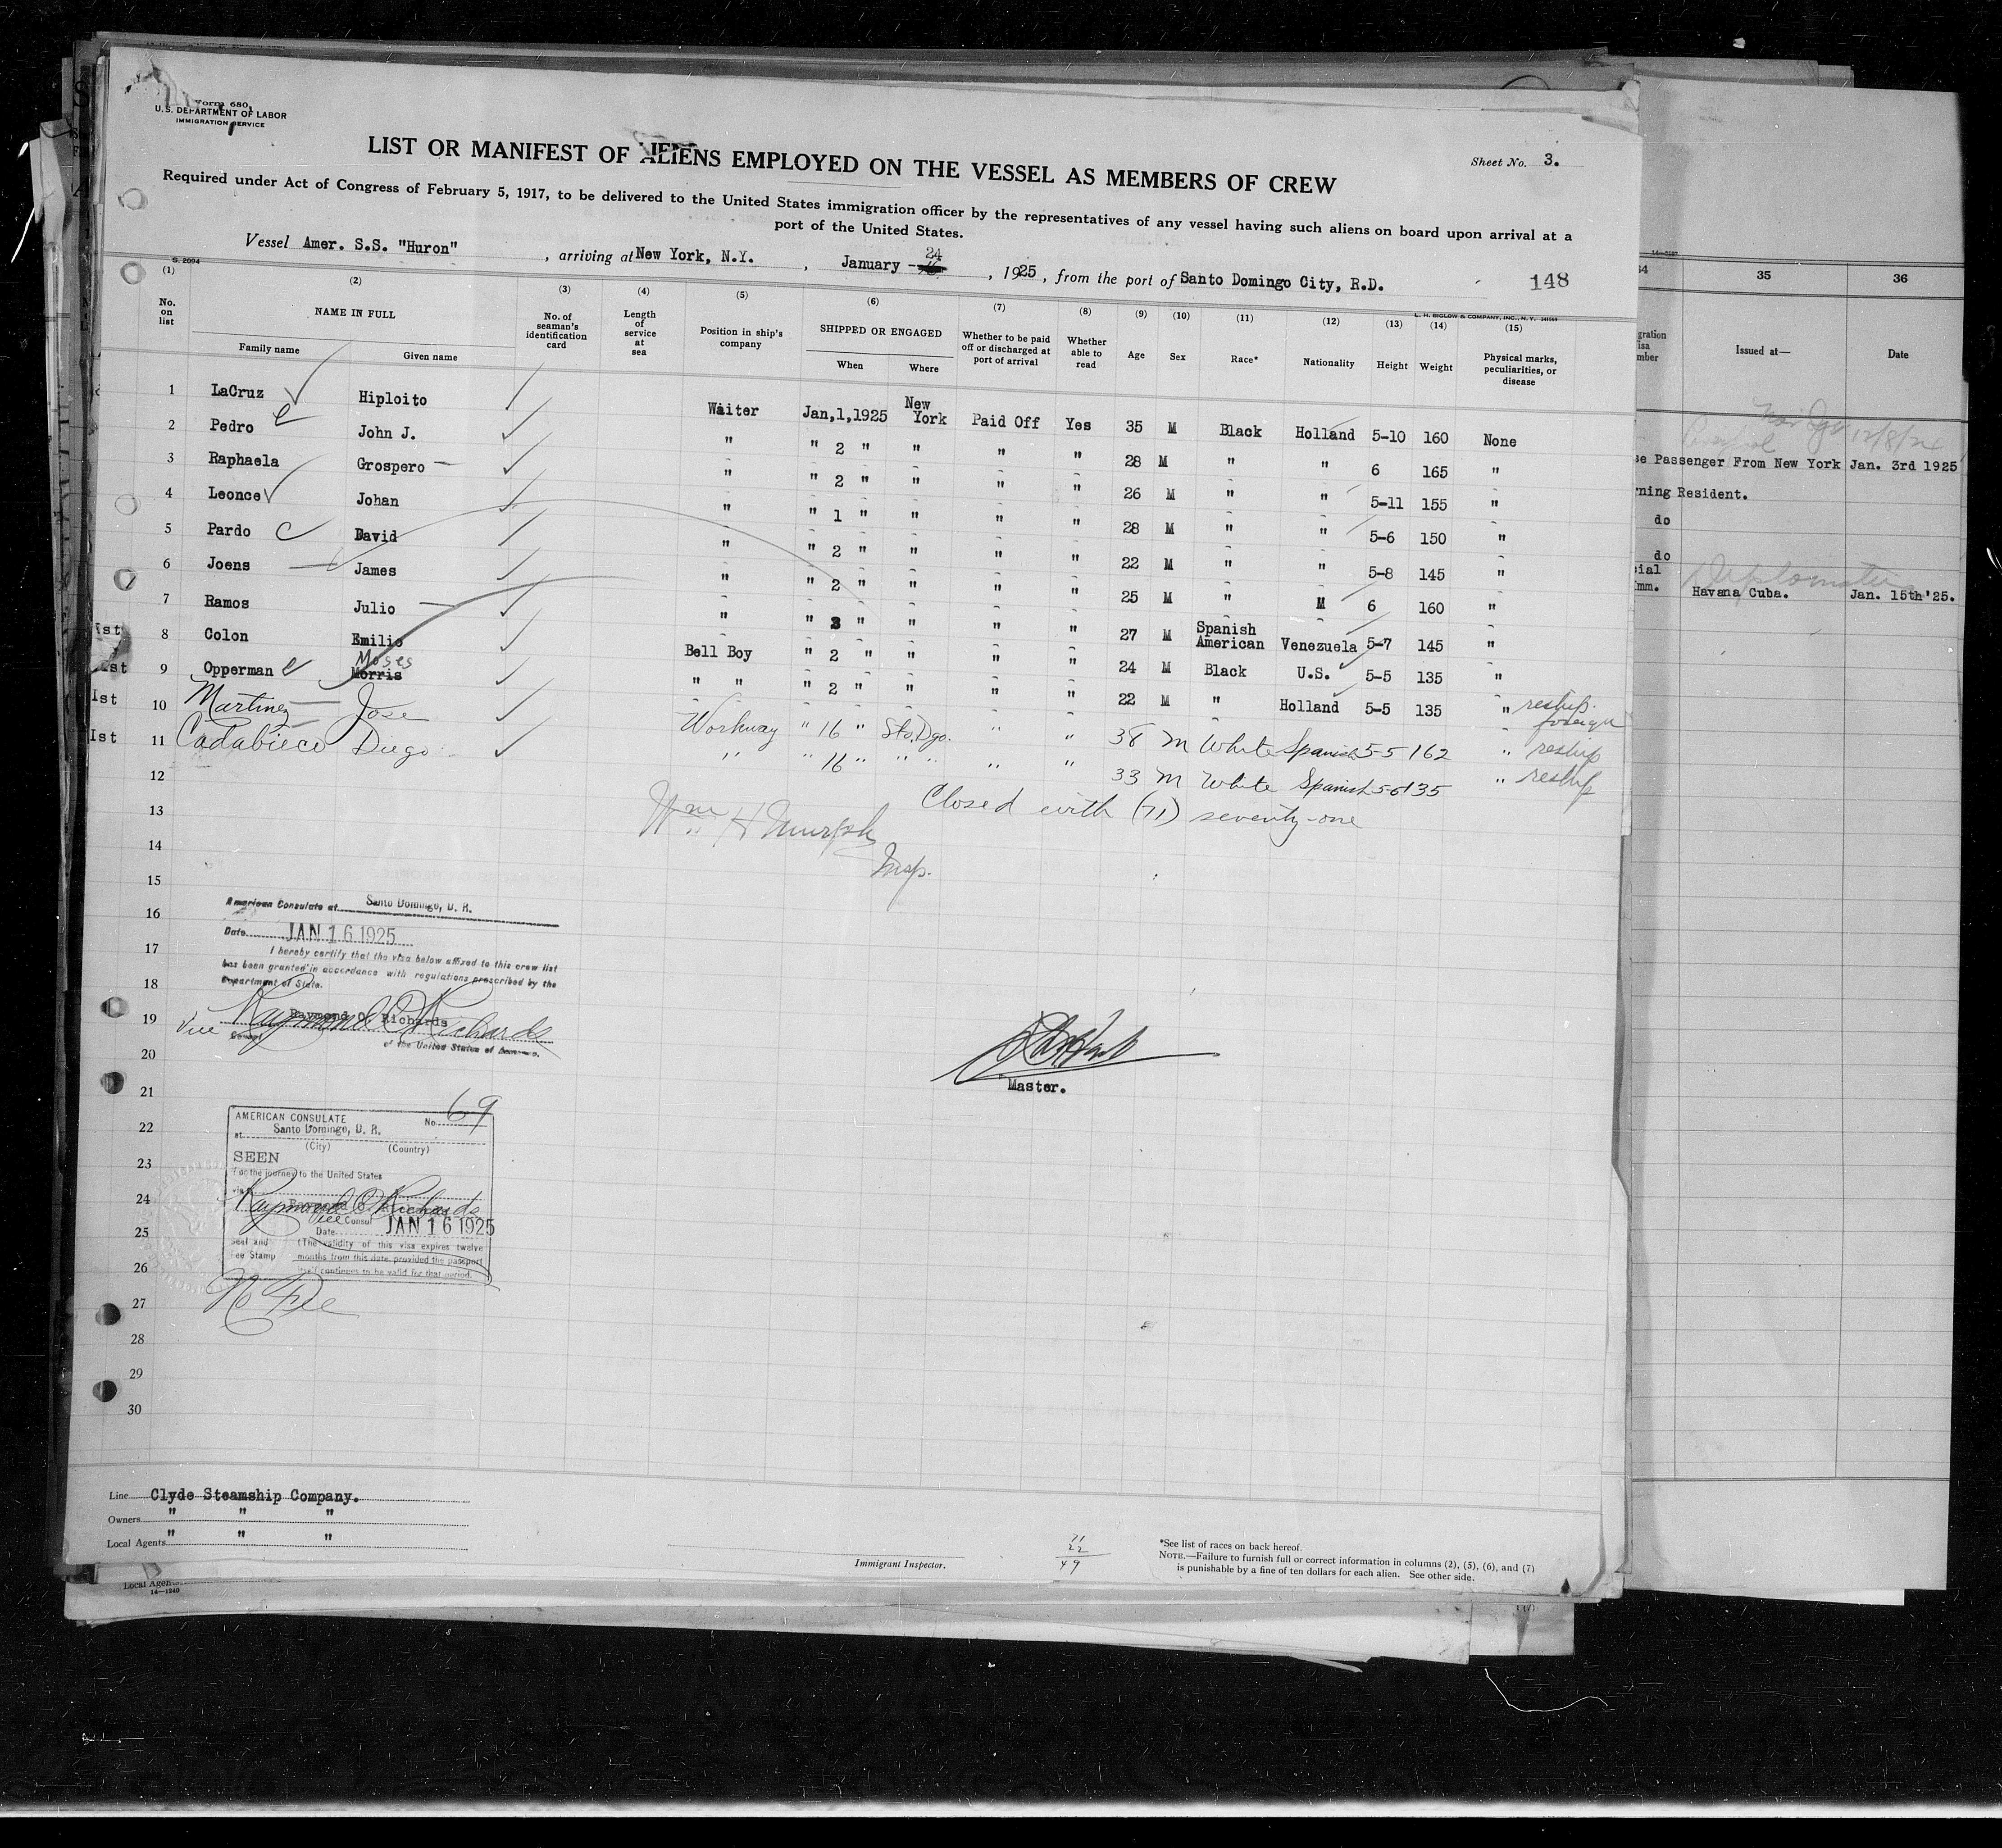 Form 680
U.S. DEPARTMENT OF LABOR
IMMIGRATION SERVICE
LIST OR MANIFEST OF ALIENS EMPLOYED ON THE VESSEL AS MEMBERS OF CREW
Sheet No. 3.
Required under Act of Congress of February 5, 1917, to be delivered to the United States immigration officer by the representatives of any vessel having such aliens on board upon arrival at a
port of the United States.
Vessel Amer. S.S. "Huron", arriving at New York, N.Y., January - 24, 1925, from the port of Santo Domingo City, R.D.
148
S. 2094
L. H. BIGLOW & COMPANY, INC., N. Y.
(1) (2) (3) (4) (5) (6) (7) (8) (9) (10) (11) (12) (13) (14) (15)
No. on list NAME IN FULL Family name Given name No. of seaman's identification card Length of service at sea Position in ship's company SHIPPED OR ENGAGED When Where Whether to be paid off or discharged at port of arrival Whether able to read Age Sex Race* Nationality Height Weight Physical marks, peculiarities, or disease
1 LaCruz Hiploito Waiter Jan,1,1925 New York Paid Off Yes 35 M Black Holland 5-10 160 None
2 Pedro John J. " " 2 " " " " 28 M " " 6 165 "
3 Raphaela Grospero " " 2 " " " " 26 M " " 5-11 155 "
4 Leonce Johan " " 1 " " " " 28 M " " 5-6 150 "
5 Pardo David " " 2 " " " " 22 M " " 5-8 145 "
6 Joens James " " 2 " " " " 25 M " M 6 160 "
7 Ramos Julio " " 3 " " " " 27 M Spanish American Venezuela 5-7 145 "
1st 8 Colon Emilio Bell Boy " 2 " " " " 24 M Black U.S. 5-5 135 "
1st 9 Opperman Moses Morris " " " 2 " " " " 22 M " Holland 5-5 135 " reship foreign
1st 10 Martinez Jose Workway " 16 " Sto. Dgo. " " 38 M White Spanish 5-5 162 " reship
1st 11 Cadabieco Diego " " 16 " " " " " 33 M White Spanish 5-6 135 " reship
12
13
14
15
16
17
18
19
20
21
22
23
24
25
26
27
28
29
30
Closed with (71) seventy-one
Wm H Murph
Insp.
American Consulate at Santo Domingo, D. R.
Date JAN 16 1925
I hereby certify that the visa below affixed to this crew list
has been granted in accordance with regulations prescribed by the
Department of State.
Raymond O. Richards
Vice Raymond O Richards
Consul of the United States of America.
Master.
AMERICAN CONSULATE No. 69
at Santo Domingo, D. R.
(City) (Country)
SEEN
For the journey to the United States
via
Raymond O Richards
Vice Consul
Date JAN 16 1925
Seal and Fee Stamp
(The validity of this visa expires twelve
months from this date provided the passport
itself continues to be valid for that period.
No Fee
Line Clyde Steamship Company.
Owners " " "
Local Agents " " "
Immigrant Inspector.
71
22
49
*See list of races on back hereof.
NOTE.—Failure to furnish full or correct information in columns (2), (5), (6), and (7)
is punishable by a fine of ten dollars for each alien. See other side.
Local Agents
14—1240
34 35 36
Issued at— Date
12/8/24
Passenger From New York Jan. 3rd 1925
Resident.
do
do
Diplomatic
Havana Cuba. Jan. 15th '25.